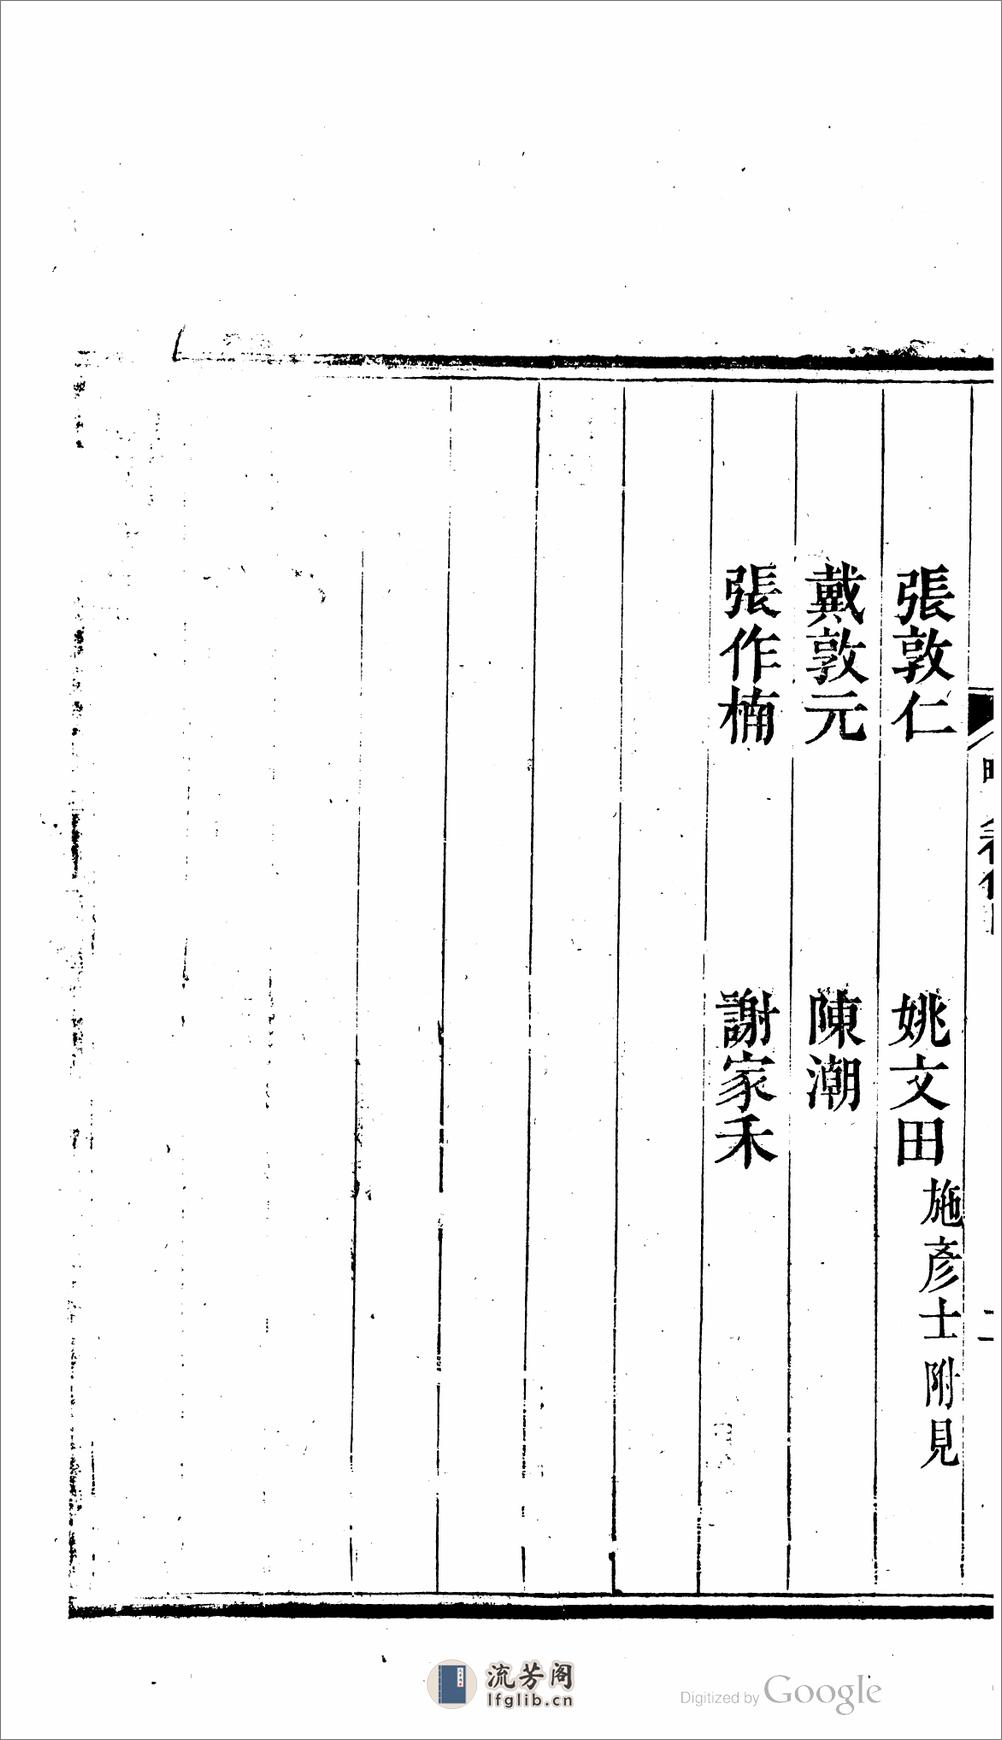 張敦仁　姚文田施彥士附見
戴敦元　陳潮
張作楠　謝家禾
二
流芳阁
lfglib.cn
Digitized by Google